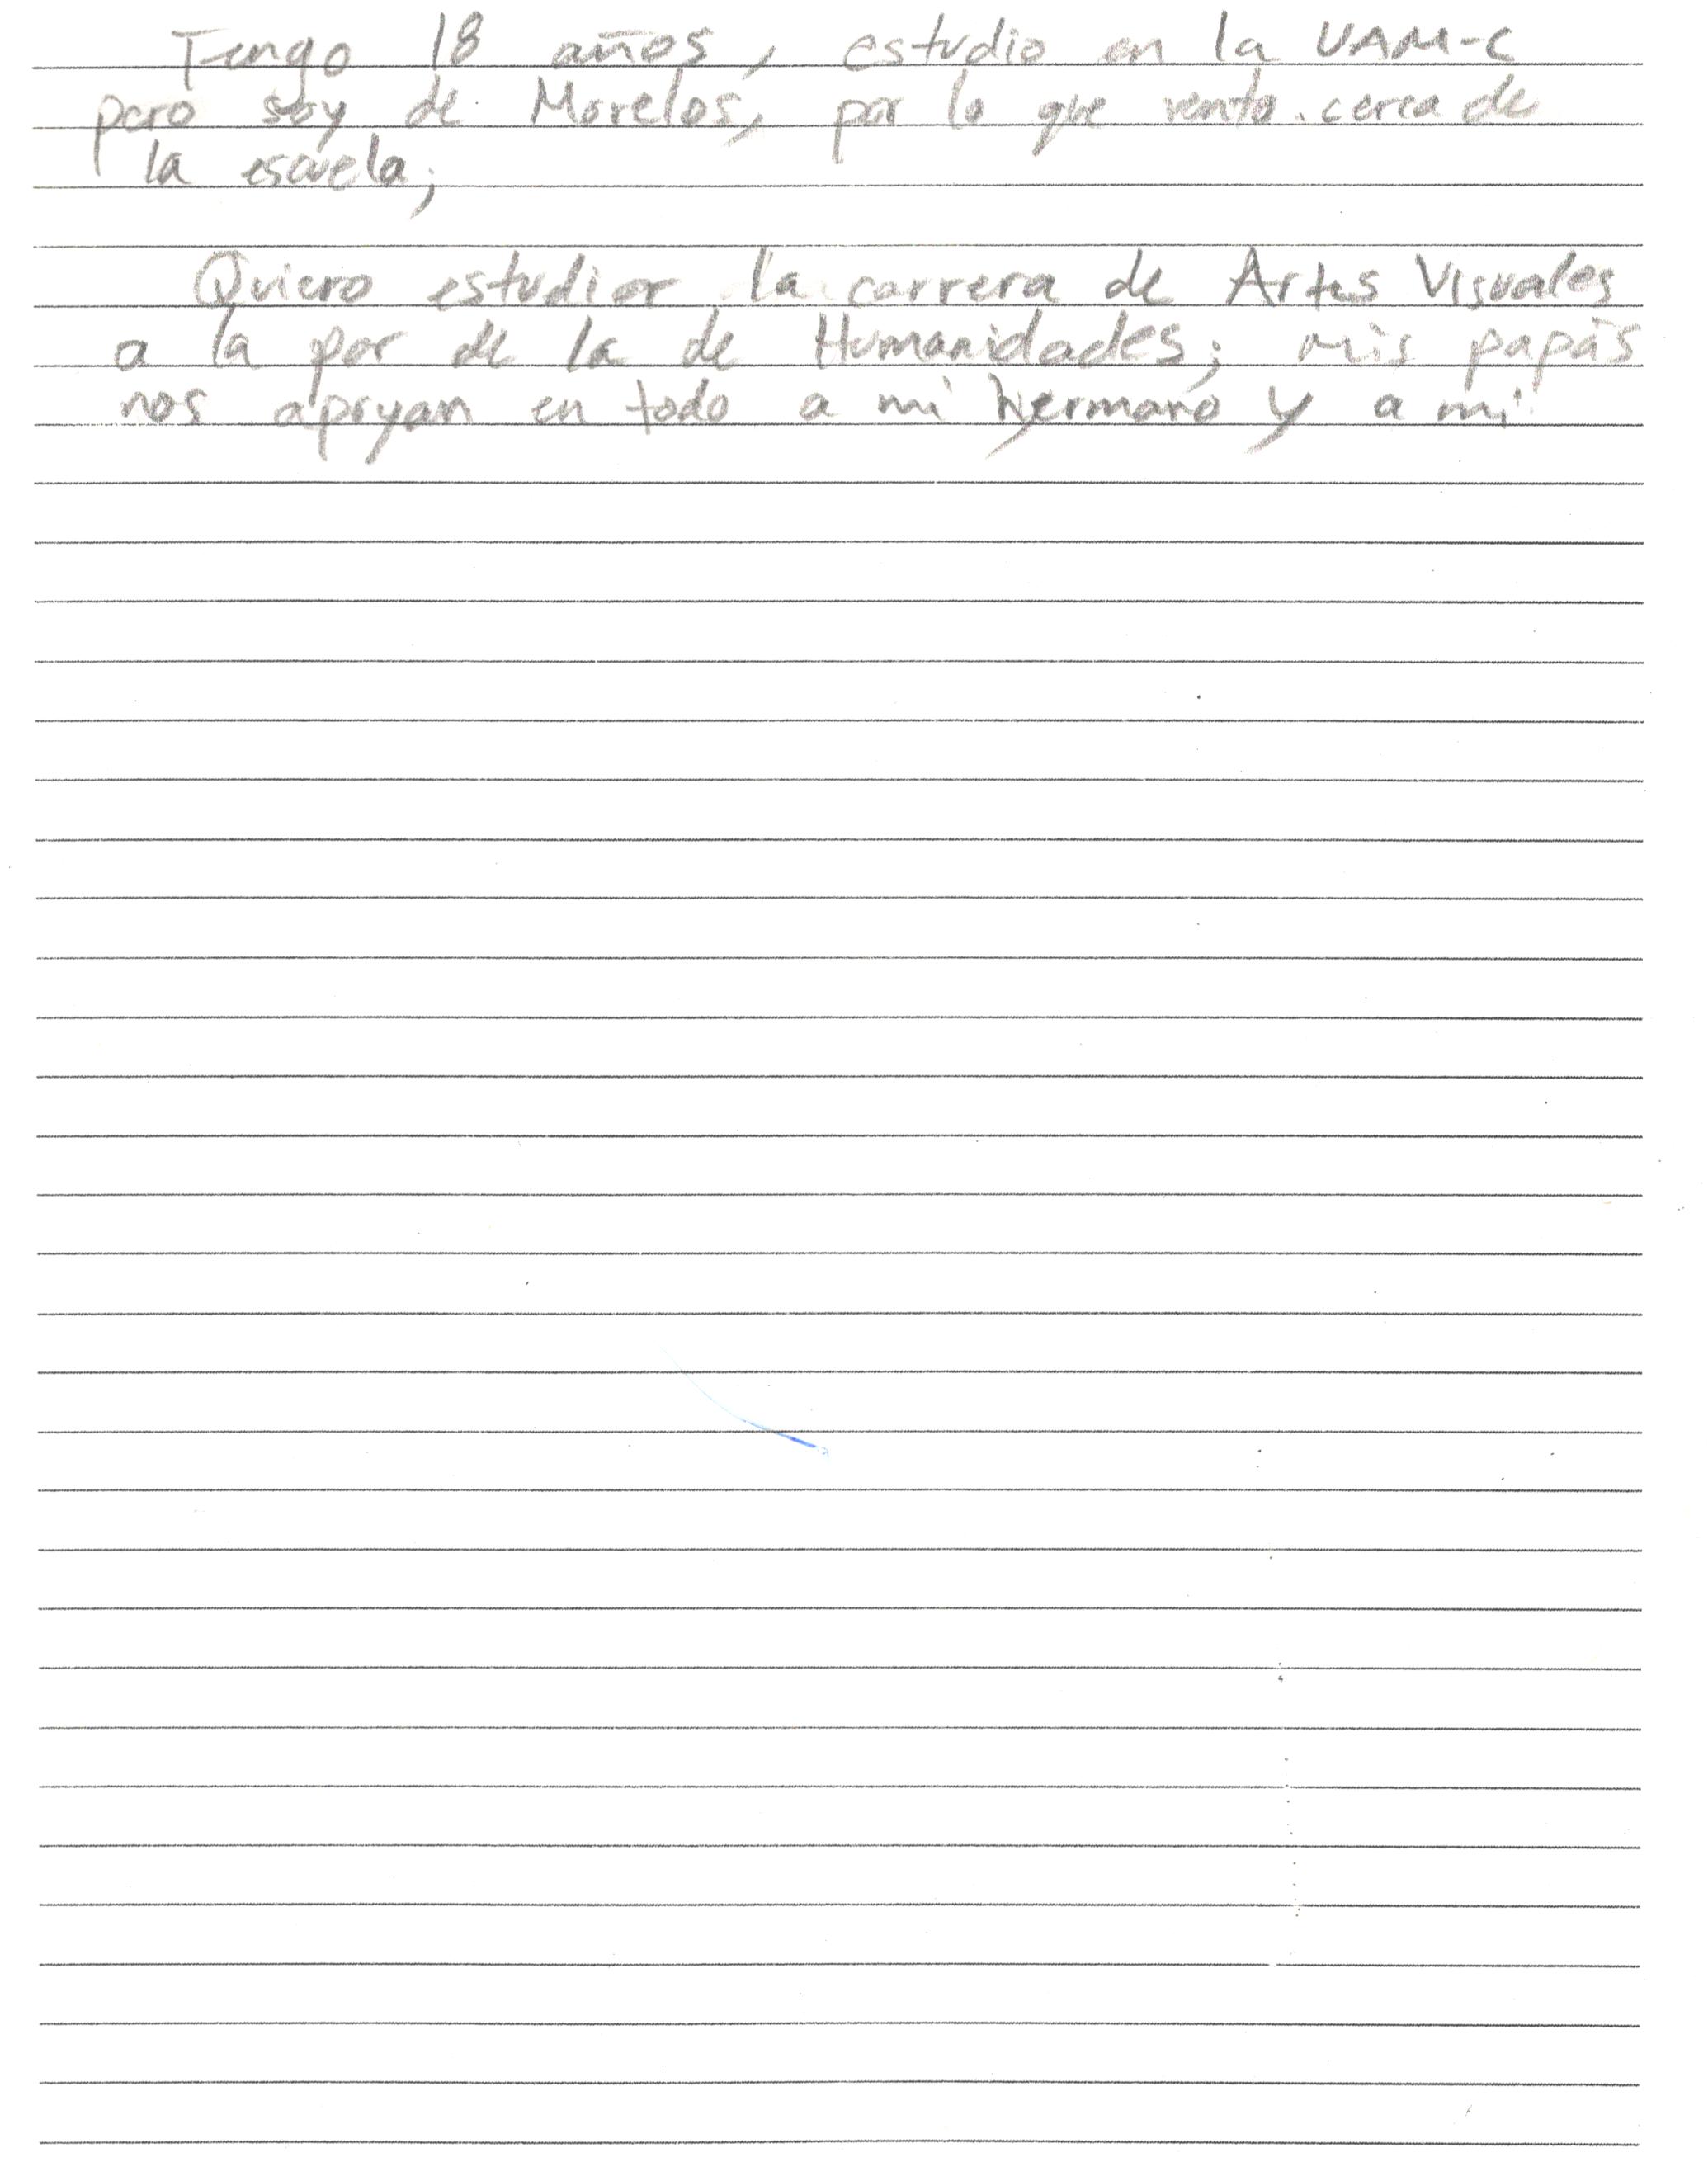 Tengo 18 años, estudio en la UAM-C
pero soy de Morelos, por lo que rento cerca de
la escuela;
Quiero estudiar la carrera de Artes Visuales
a la par de la de Humanidades; mis papás
nos apoyan en todo a mi hermano y a mi